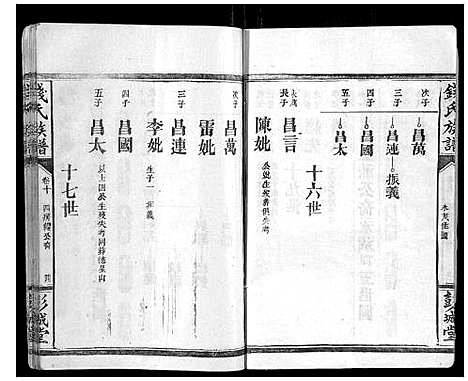 錢氏族譜
彭城堂
次子 昌萬
三子 昌連 振義
四子 昌國
五子 昌太
十六世
長子 昌言
陳妣
公妣生歿葬俱失考
次子 昌萬
雷妣
三子 昌連
李妣
生子一 振義
四子 昌國
五子 昌太
十七世
錢氏族譜
卷十
彭城堂